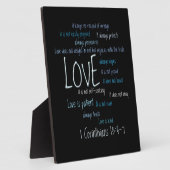 it keeps no record of wrongs
it is not easily angered  it always protects
always perseveres
Love does not delight in evil but rejoices with the truth
always hopes
LOVE
it is not proud
it does not boast
it is not self-seeking
Love is patient  it does not envy
always trusts
Love is kind
1 Corinthians 13:4-7